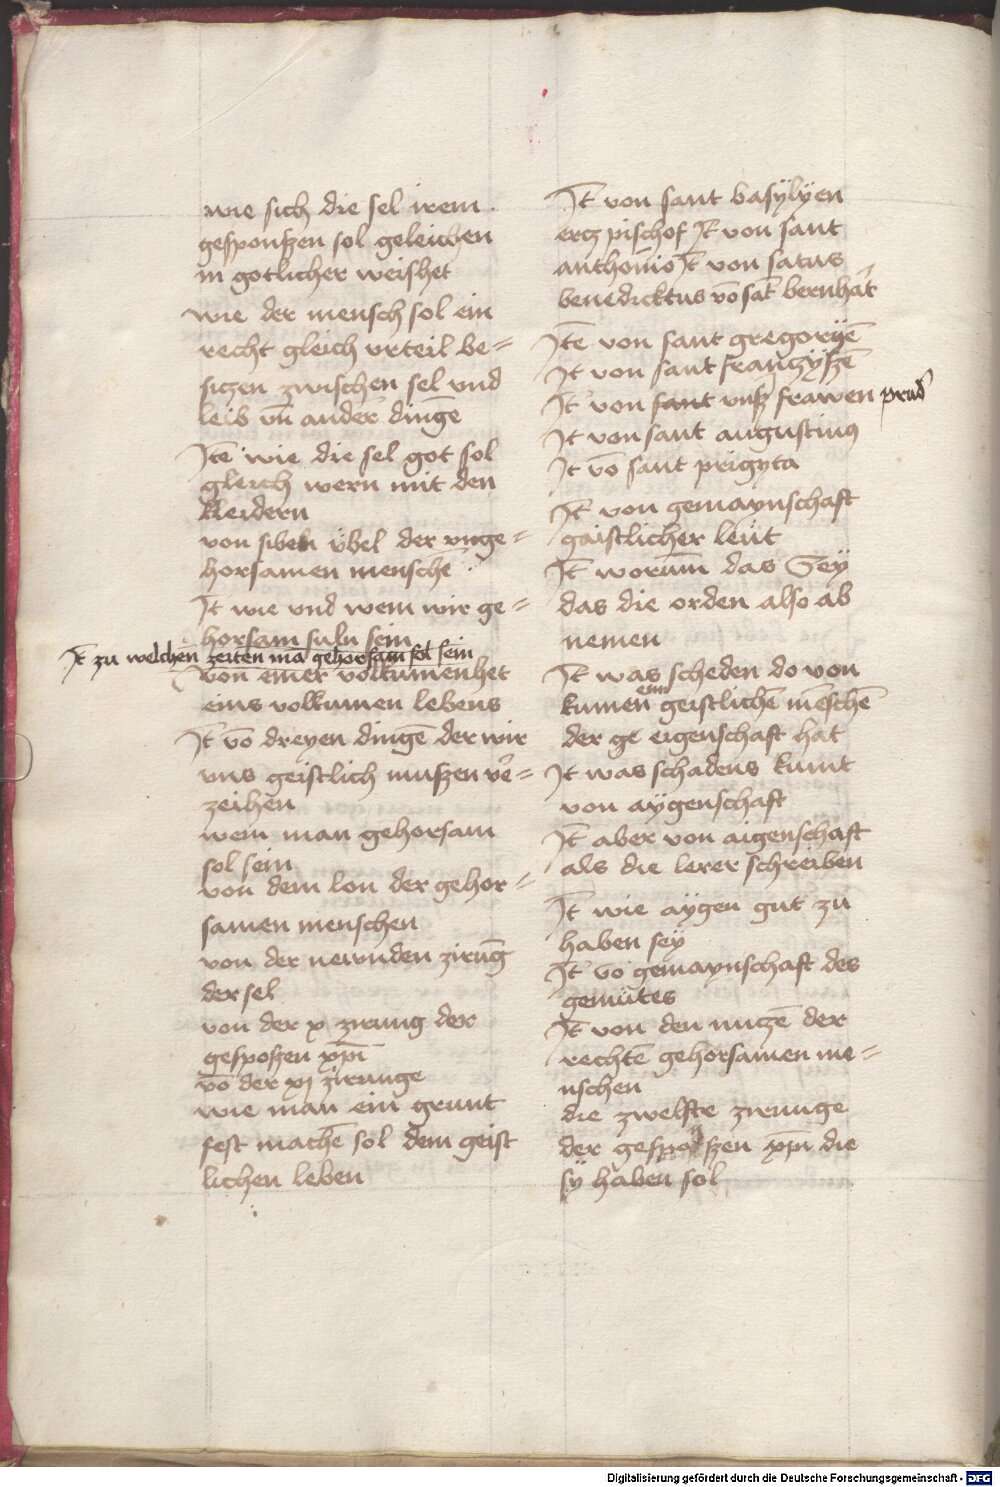 wie sich die sel irem
gesponszen sol geleichen
in gotlicher weishet
wie der mensch sol ein
recht gleich vrteil be=
siczen zwischen sel vnd
leib vn̄ ander dingē
Itē wie die sel got sol
gleich wern mit den
kleidern
von siben übel der vnge=
horsamen menschē
It wie vnd wem wir ge=
horsam suln sein
It̄ zu welchen zeiten mā gehorsam sol sein
von einer volkumenhet
eins volkumen lebens
It̄ vō dreyen dingē der wir
vns geistlich muszen v̄e=
zeihen
wem man gehorsam
sol sein
von dem lon der gehor=
samen menschen
von der newnden zirūg
der sel
von der x zirung der
gesposzen xp̄i
vō der xj zirunge
wie man ein grunt
fest machē sol dem geist
lichen leben
It̄ von sant basÿlÿen
ercz pischof It̄ von sant
anthonio It̄ von satus
benedicktus vō sāt bernhār
Itē von sant gregorÿē
It von sant franczÿszē
It̄ von sant vnsz frawen prud̄
It von sant augustinꝰ
It vō sant prigyta
It̄ von gemaynschaft
gaistlicher leüt
It̄ worūm das Seÿ
das die orden also ab
nemen
It̄ was scheden do von
kumen eim geistlichē mēschē
der ge eigenschaft hat
It was schadens kumt
von aÿgenschaft
It̄ aber von aigenschaft
als die lerer schreiben
It̄ wie aÿgen gut zu
haben seÿ
It̄ vō gemaynschaft des
gemütes
It̄ von den nuczē der
rechtē gehorsamen me=
nschen
die zwelfte zirunge
der gesposzen xp̄i die
sÿ haben sol
Digitalisierung gefördert durch die Deutsche Forschungsgemeinschaft - DFG